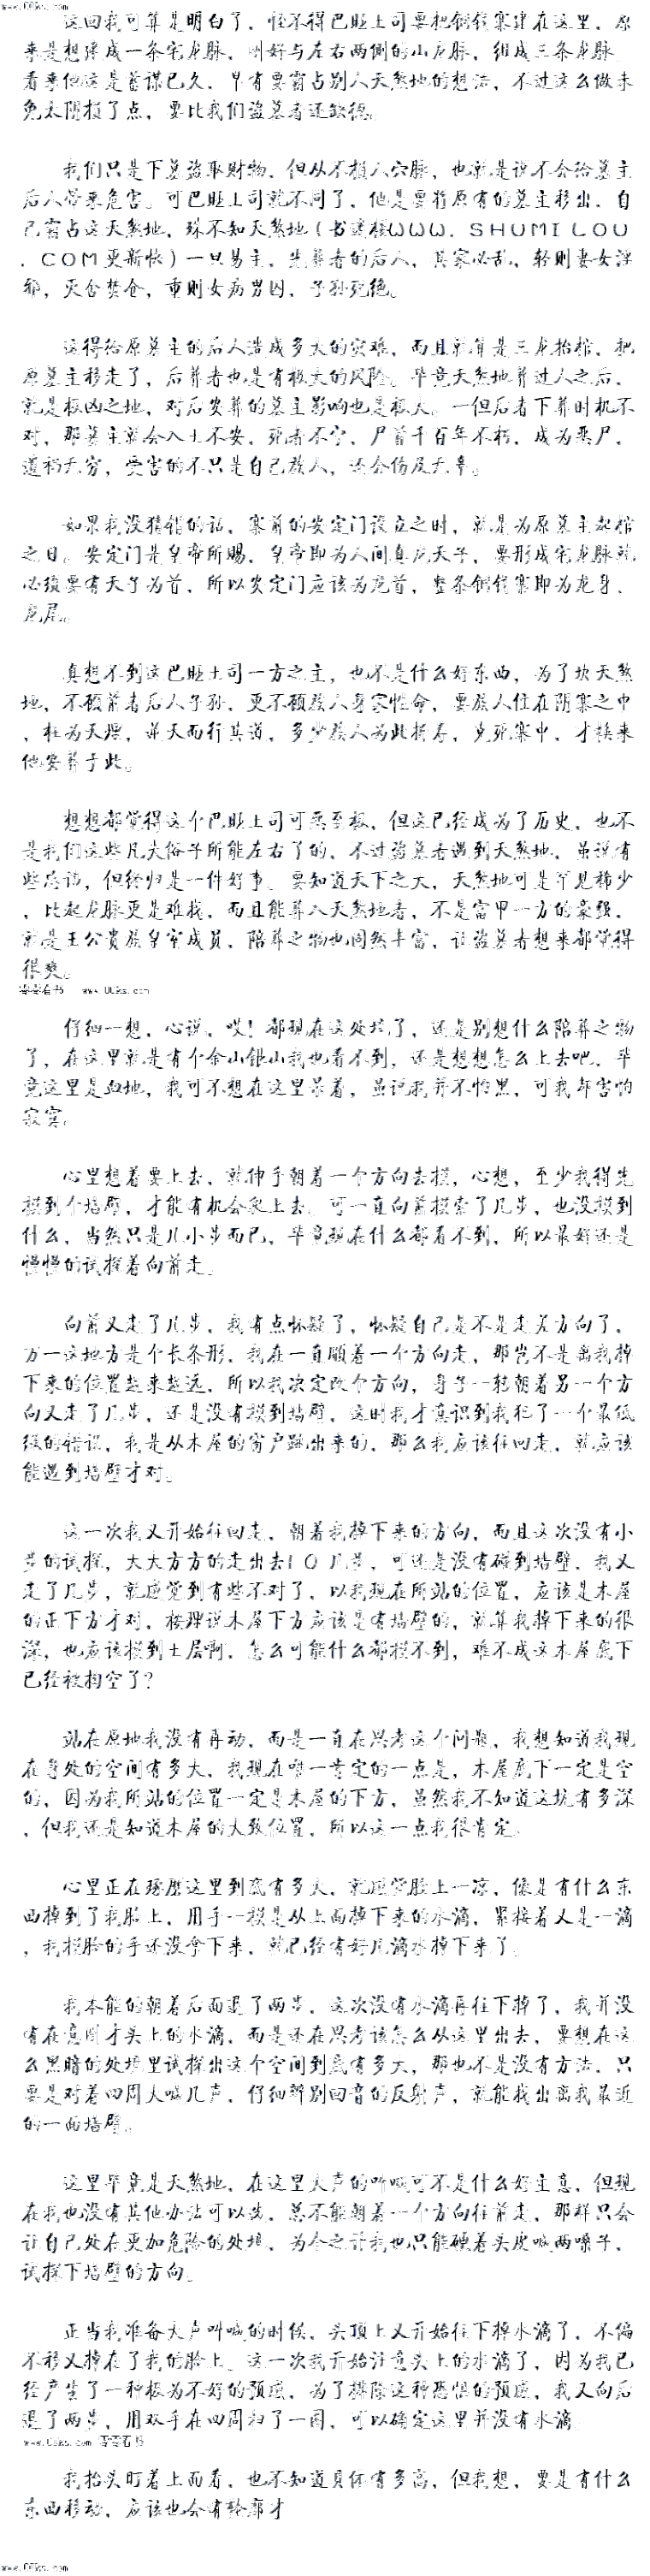 www.00ks.com
这回我可算是明白了，怪不得巴贬土司要把铜钱寨建在这里，原
来是想弄成一条宅龙脉，刚好与左右两侧的山龙脉，组成三条龙脉，
看来他这是蓄谋已久，早有要霸占别人天煞地的想法，不过这么做未
免太阴损了点，要比我们盗墓者还缺德。
我们只是下墓盗取财物，但从不损人穴脉，也就是说不会给墓主
后人带来危害。可巴贬土司就不同了，他是要将原有的墓主移出，自
己霸占这天煞地，殊不知天煞地（书迷楼WWW．SHUMILOU
．COM更新快）一旦易主，先葬者的后人，其家必乱，轻则妻女淫
邪，灭舍焚仓，重则女病男囚，子孙死绝。
这得给原墓主的后人造成多大的灾难，而且就算是三龙抬棺，把
原墓主移走了，后葬者也是有极大的风险。毕竟天煞地葬过人之后，
就是极凶之地，对后安葬的墓主影响也是极大。一但后者下葬时机不
对，那墓主就会入土不安，死者不宁，尸首千百年不朽，成为恶尸，
遗祸无穷，受害的不只是自己族人，还会伤及无辜。
如果我没猜错的话，寨前的安定门设立之时，就是为原墓主起棺
之日。安定门是皇帝所赐，皇帝即为人间真龙天子，要形成宅龙脉就
必须要有天子为首，所以安定门应该为龙首，整条铜钱寨即为龙身、
龙尾。
真想不到这巴贬土司一方之主，也不是什么好东西，为了坎天煞
地，不顾前者后人子孙，更不顾族人身家性命，要族人住在阴寨之中
，枉为天理，逆天而行其道，多少族人为此折寿，克死寨中，才换来
他安葬于此。
想想都觉得这个巴贬土司可恶至极，但这已经成为了历史，也不
是我们这些凡夫俗子所能左右了的，不过盗墓者遇到天煞地，虽说有
些忌讳，但终归是一件好事。要知道天下之大，天煞地可是罕见稀少
，比起龙脉更是难找，而且能葬入天煞地者，不是富甲一方的豪强，
就是王公贵族皇室成员，陪葬之物也同然丰富，让盗墓者想来都觉得
很爽。
零零看书 www.00ks.com
仔细一想，心说，哎！都现在这处境了，还是别想什么陪葬之物
了，在这里就是有个金山银山我也看不到，还是想想怎么上去吧，毕
竟这里是凶地，我可不想在这里呆着，虽说我并不怕黑，可我却害怕
寂寞。
心里想着要上去，就伸手朝着一个方向去摸，心想，至少我得先
摸到个墙壁，才能有机会爬上去。可一直向前摸索了几步，也没摸到
什么，当然只是几小步而已，毕竟现在什么都看不到，所以最好还是
慢慢的试探着向前走。
向前又走了几步，我有点怀疑了，怀疑自己是不是走差方向了，
万一这地方是个长条形，我在一直顺着一个方向走，那岂不是离我掉
下来的位置越来越远，所以我决定改个方向，身子一转朝着另一个方
向又走了几步，还是没有摸到墙壁，这时我才意识到我犯了一个最低
级的错误，我是从木屋的窗户跳出来的，那么我应该往回走，就应该
能遇到墙壁才对。
这一次我又开始往回走，朝着我掉下来的方向，而且这次没有小
步的试探，大大方方的走出去１０几步，可还是没有碰到墙壁，我又
走了几步，就感觉到有些不对了，以我现在所站的位置，应该是木屋
的正下方才对，按理说木屋下方应该是有墙壁的，就算我掉下来的很
深，也应该摸到土层啊，怎么可能什么都摸不到，难不成这木屋底下
已经被掏空了？
站在原地我没有再动，而是一直在思考这个问题，我想知道我现
在身处的空间有多大，我现在唯一肯定的一点是，木屋底下一定是空
的，因为我所站的位置一定是木屋的下方，虽然我不知道这坑有多深
，但我还是知道木屋的大致位置，所以这一点我很肯定。
心里正在琢磨这里到底有多大，就感觉脸上一凉，像是有什么东
西掉到了我脸上，用手一摸是从上面掉下来的水滴，紧接着又是一滴
，我摸脸的手还没拿下来，就已经有好几滴水掉下来了。
我本能的朝着后面退了两步，这次没有水滴再往下掉了，我并没
有在意刚才头上的水滴，而是还在思考该怎么从这里出去，要想在这
么黑暗的处境里试探出这个空间到底有多大，那也不是没有方法，只
要是对着四周大喊几声，仔细辨别回音的反射声，就能找出离我最近
的一面墙壁。
这里毕竟是天煞地，在这里大声的呼喊可不是什么好主意，但现
在我也没有其他办法可以选，总不能朝着一个方向往前走，那样只会
让自己处在更加危险的处境，为今之计我也只能硬着头皮喊两嗓子，
试探下墙壁的方向。
正当我准备大声叫喊的时候，头顶上又开始往下掉水滴了，不偏
不移又掉在了我的脸上，这一次我开始注意头上的水滴了，因为我已
经产生了一种极为不好的预感，为了排除这种恐惧的预感，我又向后
退了两步，用双手在四周扫了一圈，可以确定这里并没有水滴。
www.00ks.com 零零看书
我抬头盯着上面看，也不知道具体有多高，但我想，要是有什么
东西移动，应该也会有轮廓才
www.00ks.com